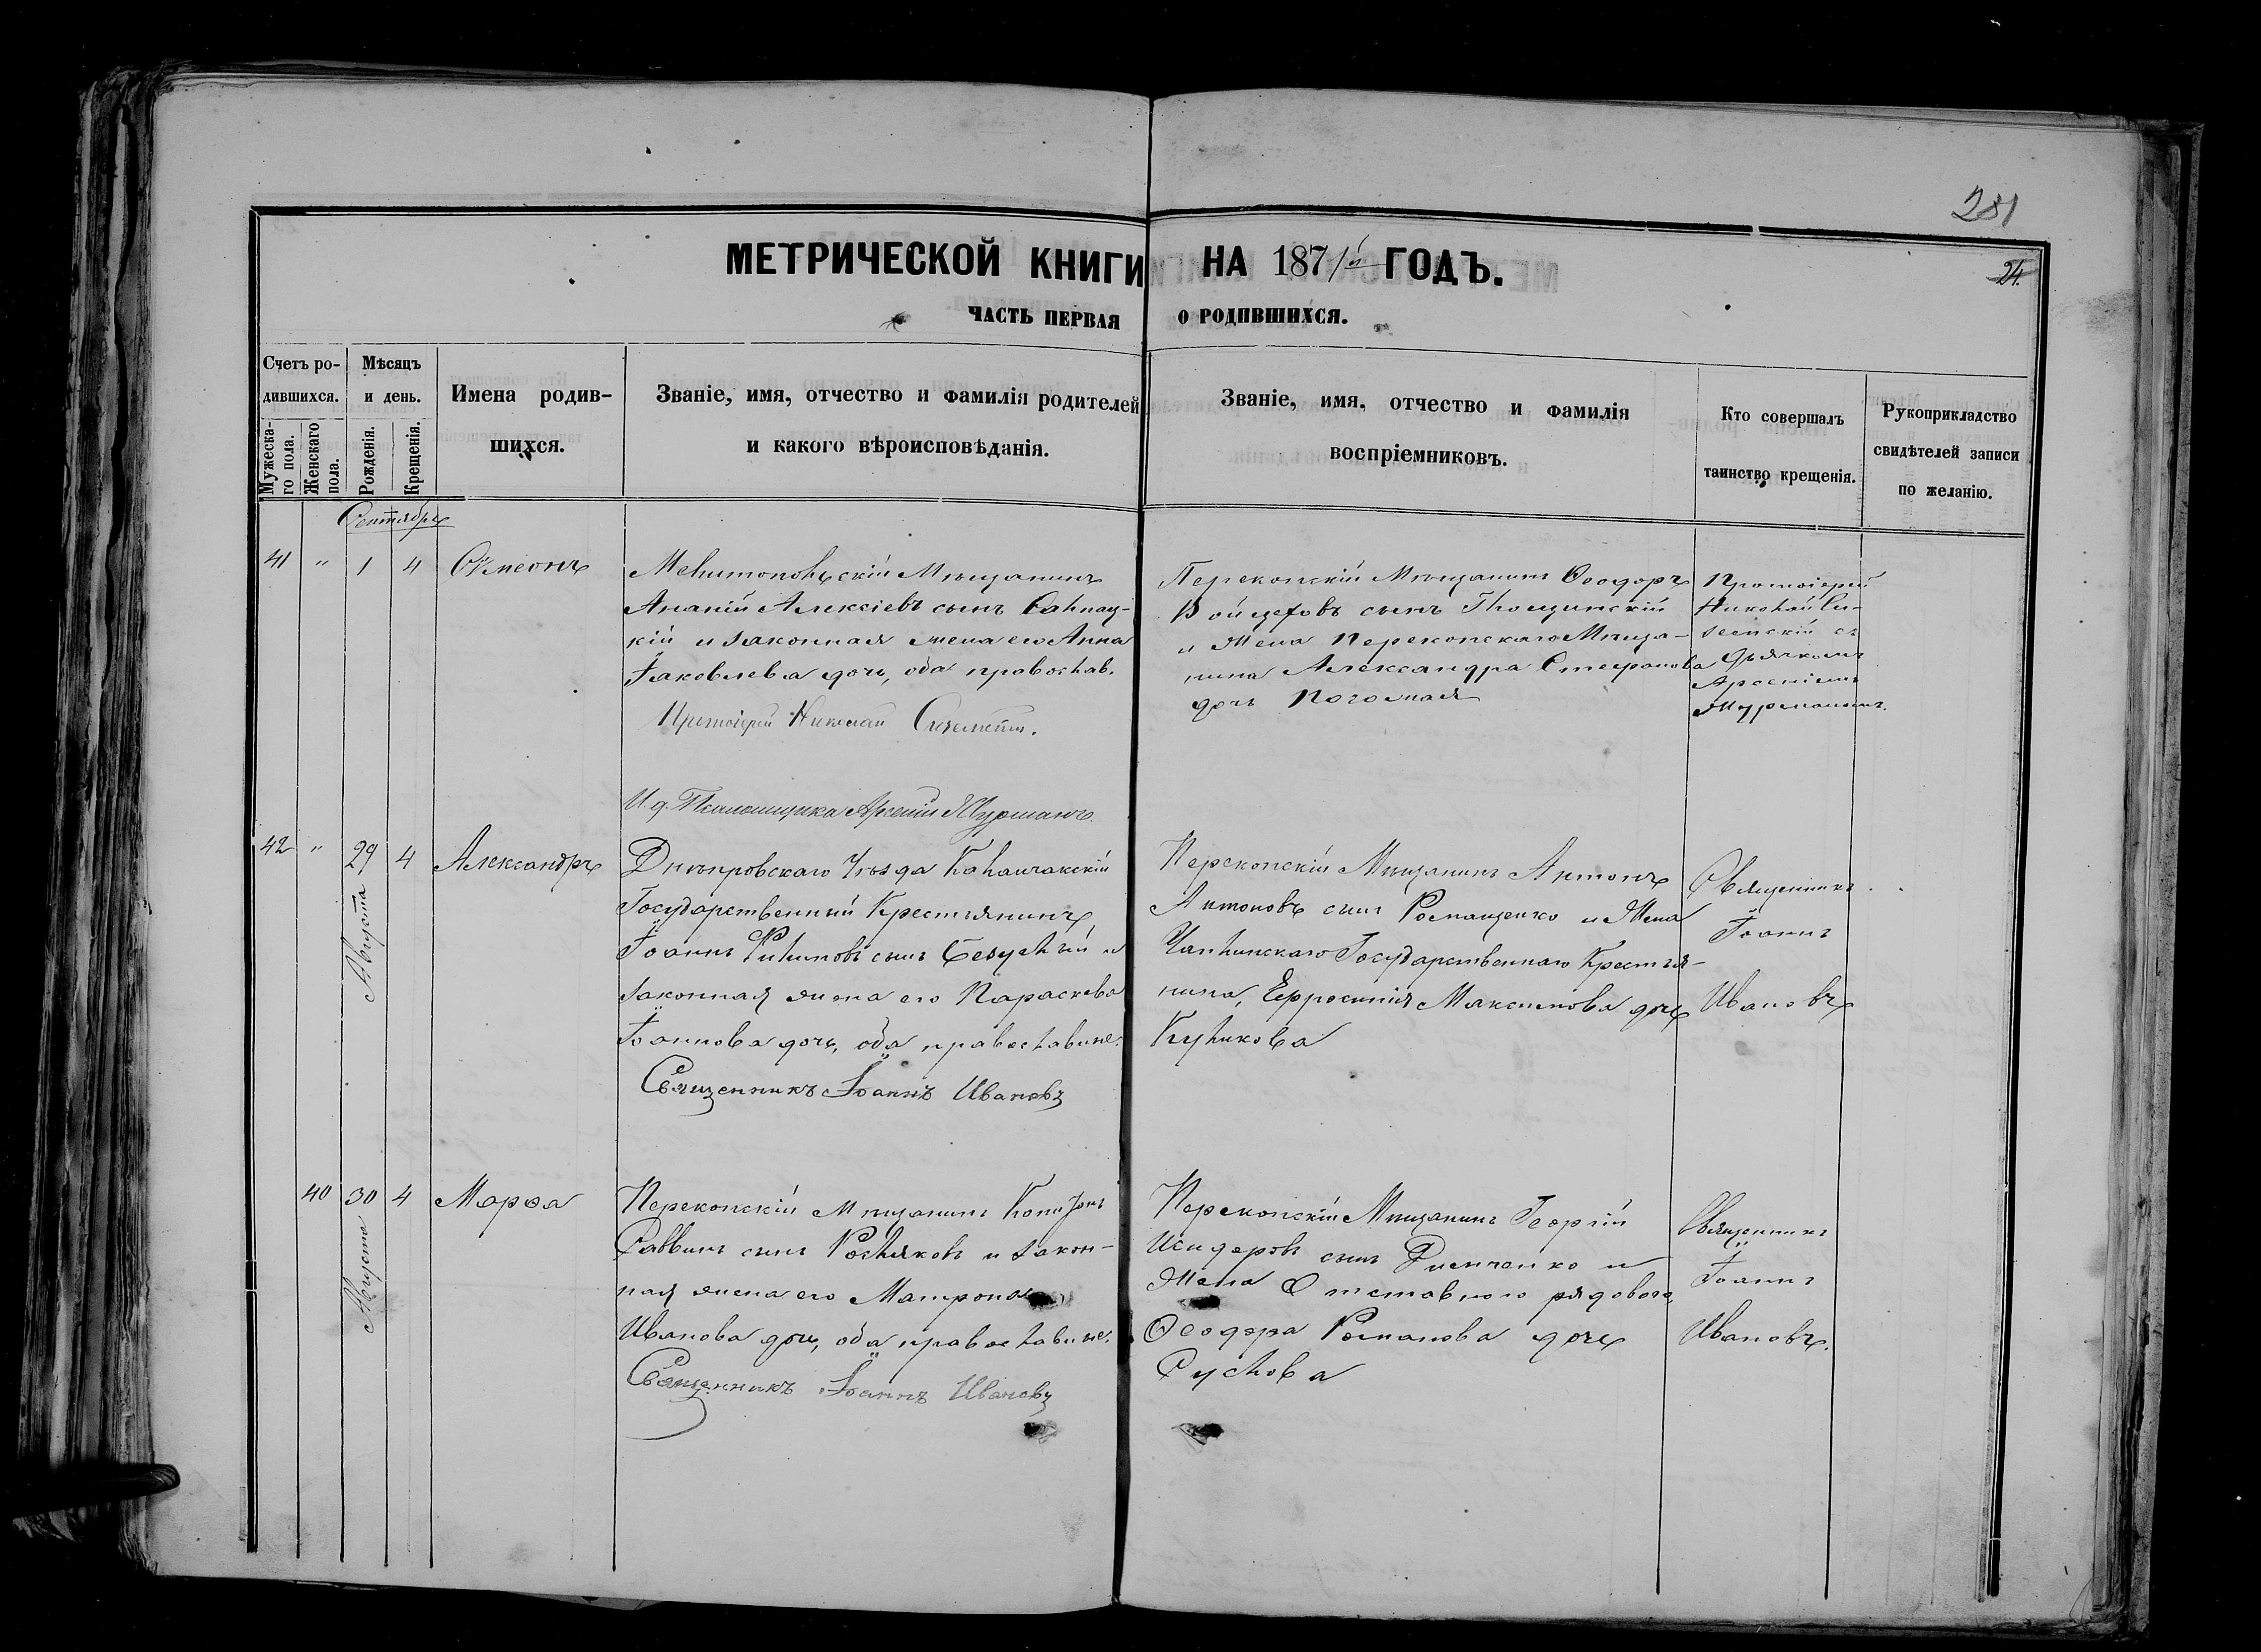 281
24.
МЕТРИЧЕСКОЙ КНИГИ НА 1871й ГОДЪ.
ЧАСТЬ ПЕРВАЯ О РОДИВШИХСЯ.
Счетъ ро-
дившихся.
Мужеска-
го пола.
Женскаго
пола.
Мѣсяцъ
и день.
Рожденія.
Крещенія.
Имена родив-
шихся.
Званіе, имя, отчество и фамилія родителей
и какого вѣроисповѣданія.
Званіе, имя, отчество и фамилія
воспріемниковъ.
Кто совершалъ
таинство крещенія.
Рукоприкладство
свидѣтелей записи
по желанію.
Сентябрь
41 " 1 4 Сѵмеонъ
Мелитопольскій Мѣщанинъ
Ананій Алексіевъ сынъ
кій и законная жена его Анна
Іаковлева дочь, оба православ.
Протоіерей Николай
И. д. Псаломщика Арсеній Мурманъ
Перекопскій Мѣщанинъ Ѳеодоръ
сынъ
и Жена Перекопскаго Мѣща-
нина Александра Стефанова
дочь
Протоіерей
Николай Си-
земскій съ
дьячкомъ
Арсеніемъ
Мурманомъ.
42 " 29 4 Александръ
Августа
Днѣпровскаго Уѣзда Каланчакскій
Государственный Крестьянинъ
Іоаннъ Филиповъ сынъ Безуглый и
законная жена его Параскева
Іоаннова дочь, оба православные.
Священникъ Іоаннъ Ивановъ
Перекопскій Мѣщанинъ Антонъ
Антоновъ сынъ Романщенко и Жена
Чаплинскаго Государственнаго Крестья-
нина, Евфросинія Максимова дочь
Куликова
Священникъ
Іоаннъ
Ивановъ
40 30 4 Марѳа
Августа
Перекопскій Мѣщанинъ
Саввинъ сынъ Росляковъ и закон-
ная жена его Матрона
Иванова дочь, оба православные.
Священникъ Іоаннъ Ивановъ
Перекопскій Мѣщанинъ Георгій
Исидоровъ сынъ и
Жена Отставного рядового,
Ѳеодора Романова дочь
Суслова
Священникъ
Іоаннъ
Ивановъ.